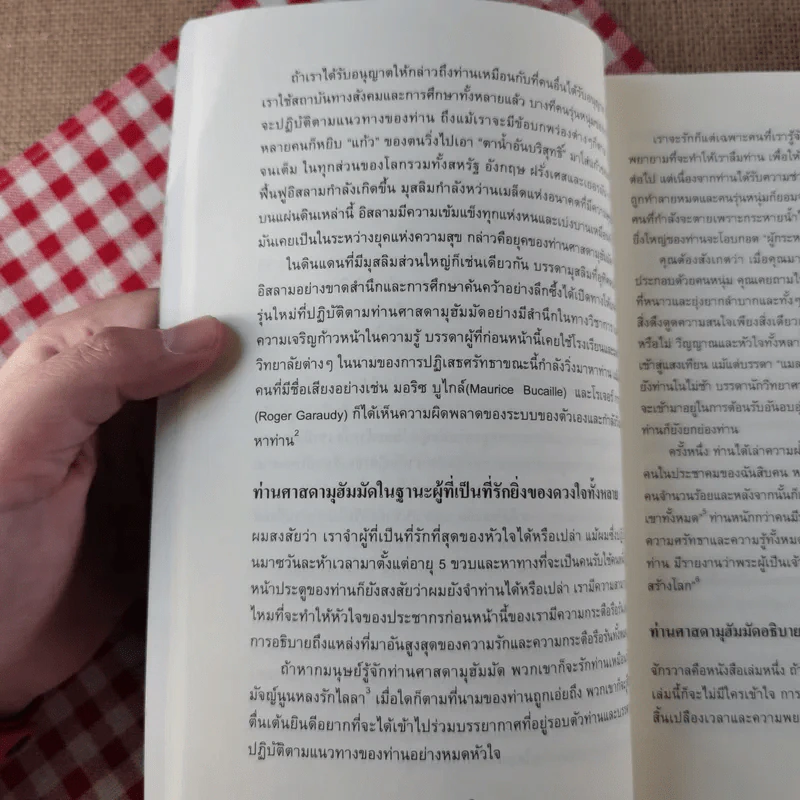 ถ้าเราได้รับอนุญาตให้กล่าวถึงท่านเหมือนกับที่คนอื่นได้รับอนุญาต
เราใช้สถาบันทางสังคมและการศึกษาทั้งหลายแล้ว บางทีคนรุ่นหนุ่ม
จะปฏิบัติตามแนวทางของท่าน ถึงแม้เราจะมีข้อบกพร่องต่างๆ
หลายคนก็หยิบ “แก้ว” ของตนวิ่งไปเอา “ตาน้ำอันบริสุทธิ์” มาใส่
จนเต็ม ในทุกส่วนของโลกรวมทั้งสหรัฐ อังกฤษ ฝรั่งเศสและ
ฟื้นฟูอิสลามกำลังเกิดขึ้น มุสลิมกำลังหว่านเมล็ดแห่งอนาคตที่มี
บนแผ่นดินเหล่านี้ อิสลามมีความเข้มแข็งทุกแห่งหนและเบ่งบานเหมือน
มันเคยเป็นในระหว่างยุคแห่งความสุข กล่าวคือยุคของท่านศาสดามุฮัมมัด
ในดินแดนที่มีมุสลิมส่วนใหญ่ก็เช่นเดียวกัน บรรดามุสลิมที่
อิสลามอย่างขาดสำนึกและการศึกษาค้นคว้าอย่างลึกซึ้งได้เปิดทางให้
รุ่นใหม่ที่ปฏิบัติตามท่านศาสดามุฮัมมัดอย่างมีสำนึกในทางวิชาการ
ความเจริญก้าวหน้าในความรู้ บรรดาผู้ที่ก่อนหน้านี้เคยใช้โรงเรียนและ
วิทยาลัยต่างๆ ในนามของการปฏิเสธศรัทธาขณะนี้กำลังวิ่งมาหาท่าน
คนที่มีชื่อเสียงอย่างเช่น มอริซ บูไกล์(Maurice Bucaille) และโรเจอร์
(Roger Garaudy) ก็ได้เห็นความผิดพลาดของระบบของตัวเองและกำลัง
หาท่าน²
ท่านศาสดามุฮัมมัดในฐานะผู้ที่เป็นที่รักยิ่งของดวงใจทั้งหลาย
ผมสงสัยว่า เราจำผู้ที่เป็นที่รักที่สุดของหัวใจได้หรือเปล่า แม้ผมซึ่ง
นมาซวันละห้าเวลามาตั้งแต่อายุ 5 ขวบและหาทางที่จะเป็นคนรับใช้
หน้าประตูของท่านก็ยังสงสัยว่าผมยังจำท่านได้หรือเปล่า เรามีความสามารถ
ไหมที่จะทำให้หัวใจของประชากรก่อนหน้านี้ของเรามีความกระตือรือร้น
การอธิบายถึงแหล่งที่มาอันสูงสุดของความรักและความกระตือรือร้นทั้งหมด
ถ้าหากมนุษย์รู้จักท่านศาสดามุฮัมมัด พวกเขาก็จะรักท่านเหมือน
มัจญ์นูนหลงรักไลลา³ เมื่อใดก็ตามที่นามของท่านถูกเอ่ยถึง พวกเขาก็จะ
ตื่นเต้นยินดีอยากที่จะได้เข้าไปร่วมบรรยากาศที่อยู่รอบตัวท่านและ
ปฏิบัติตามแนวทางของท่านอย่างหมดหัวใจ
เราจะรักก็แต่เฉพาะคนที่เรารู้
พยายามที่จะทำให้เราลืมท่าน เพื่อให้
ต่อไป แต่เนื่องจากท่านได้รับความ
ถูกทำลายหมดและคนรุ่นหนุ่มก็ยอม
คนที่กำลังจะตายเพราะกระหายน้ำ
ยิ่งใหญ่ของท่านจะโอบกอด “ผู้กระ
คุณต้องสังเกตว่า เมื่อคุณมา
ประกอบด้วยคนหนุ่ม คุณเคยถาม
ที่หนาวและยุ่งยากลำบากและทั้งๆ
สิ่งดึงดูดความสนใจเพียงสิ่งเดียว
หรือไม่ วิญญาณและหัวใจทั้งหลาย
เข้าสู่แสงเทียน แม้แต่บรรดา “แมล
ยังท่านในไม่ช้า บรรดานักวิทยา
จะเข้ามาอยู่ในการต้อนรับอันอบอุ่
ท่านก็ยังยกย่องท่าน
ครั้งหนึ่ง ท่านได้เล่าความ
คนในประชาคมของฉันสิบคน
คนจำนวนร้อยและหลังจากนั้นก็
เขาทั้งหมด”⁵ ท่านหนักกว่าคน
ความศรัทธาและความรู้ทั้งหมด
ท่าน มีรายงานว่าพระผู้เป็นเจ้า
สร้างโลก”⁶
ท่านศาสดามุฮัมมัดอธิบาย
จักรวาลคือหนังสือเล่มหนึ่ง ถ้า
เล่มนี้ก็จะไม่มีใครเข้าใจ การ
สิ้นเปลืองเวลาและความพย